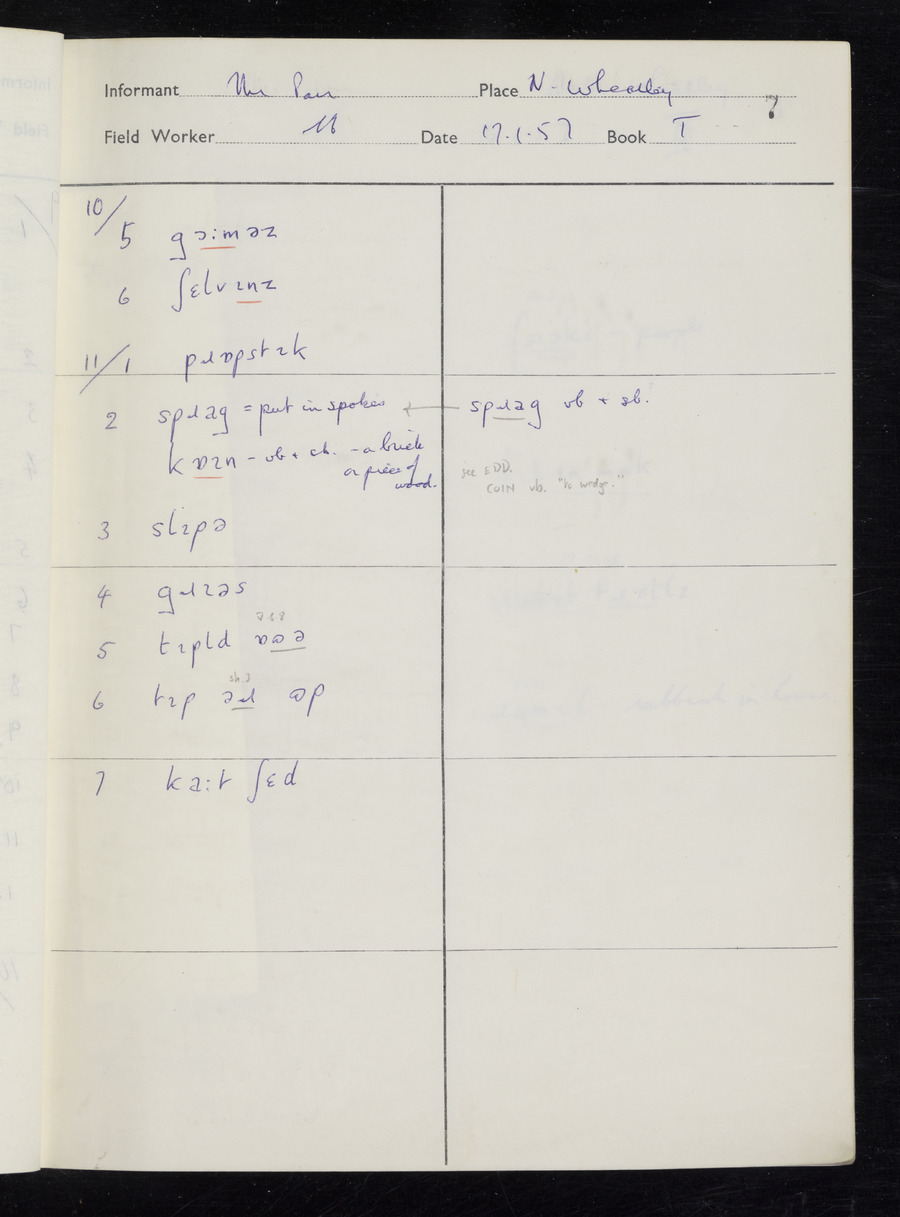 Informant Mr Parr Place N. Wheatley 7
Field Worker Date 17.1.57 Book I
10/
5 gɔ:məz
6 ʃɛlvɪnz
11/1 pɹɒpstɪk
2 spɹag = put in spokes ← spɹag vb + sb.
kɒɪn - vb + sb. - a brick
or piece of
wood.
see EDD.
COIN vb. "to wedge."
3 slɪpə
4 gɹɪəs
5 tɪpld
6 tɪp əɹ ɷp
7 ka:t ʃɛd